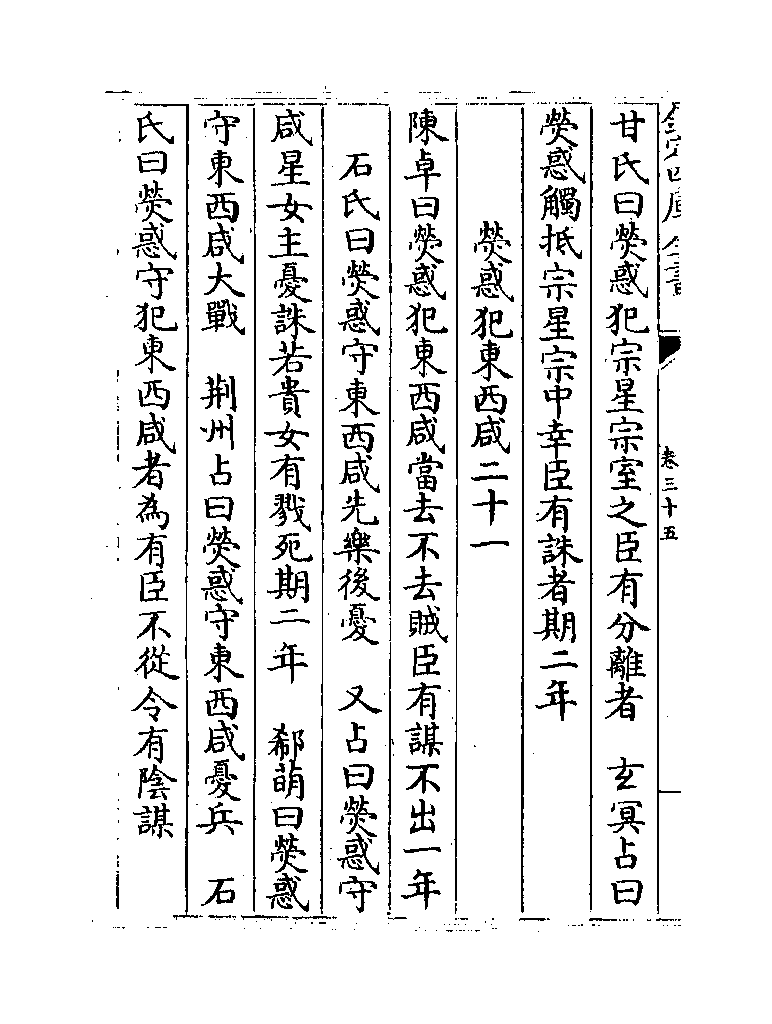 欽定四庫全書
卷三十五
甘氏曰熒惑犯宗星宗室之臣有分離者　玄冥占曰
熒惑觸抵宗星宗中幸臣有誅者期二年
熒惑犯東西咸二十一
陳卓曰熒惑犯東西咸當去不去賊臣有謀不出一年
石氏曰熒惑守東西咸先樂後憂　又占曰熒惑守
咸星女主憂誅若貴女有戮死期二年　郗萌曰熒惑
守東西咸大戰　荆州占曰熒惑守東西咸憂兵　石
氏曰熒惑守犯東西咸者為有臣不從令有陰謀